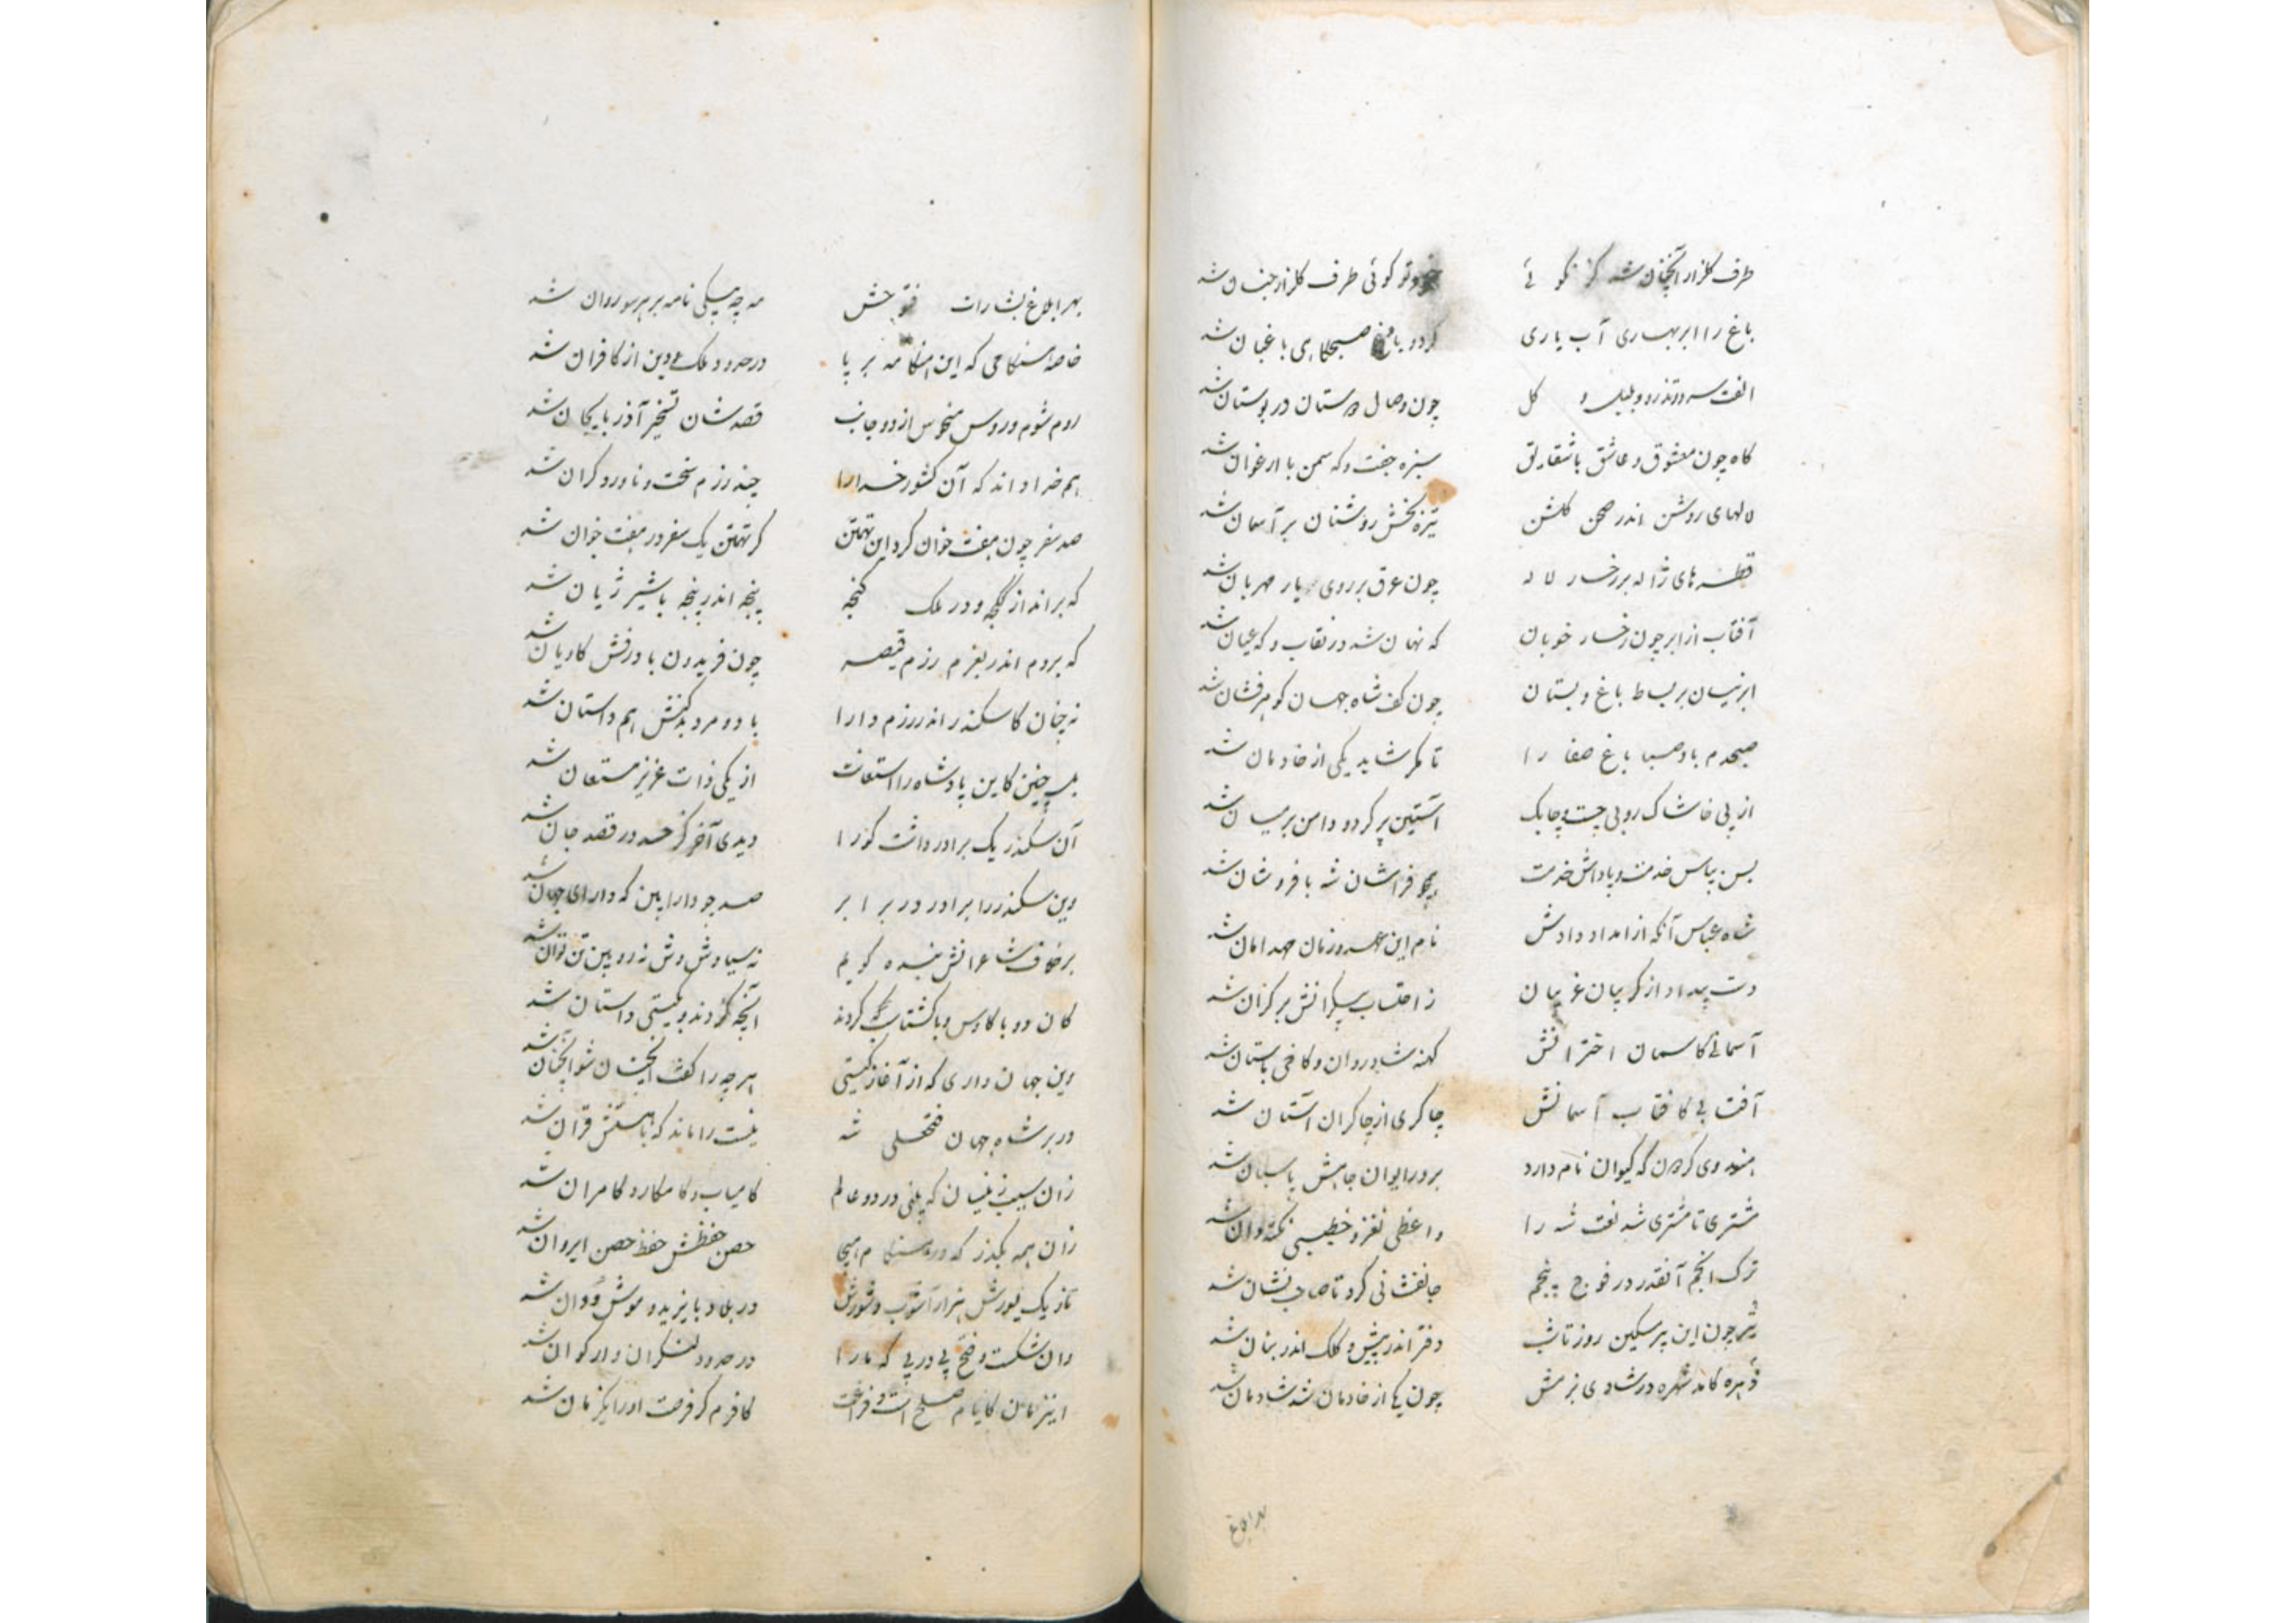 طرف گلزار آنچنان شد کز نکو ئی خود تو گوئی طرف گلزار جنان شد
باغ را ابر بهاری آب یاری کرد و باد صبحگاهی باغبان شد
الفت سرو و تذرو و بلبل و گل چون وصال دوستان در بوستان شد
گاه چون معشوق و عاشق با شقایق سبزه جفت و گه سمن با ارغوان شد
لالهای روشن اندر صحن گلشن تیزه بخش روشنان بر آسمان شد
قطره های ژاله بر رخسار لاله چون عرق بر روی یار مهربان شد
آفتاب از ابر چون رخسار خوبان گه نهان شد در نقاب و گه عیان شد
ابر نیسان بر بساط باغ و بستان چون کف شاه جهان گوهرفشان شد
صبحدم باد صبا باغ صفا را تا مگر شاید یکی از خادمان شد
از پی خاشاک روبی چست و چابک آستین بر کرد و دامن بر میان شد
بس بپاس خدمت و پاداش خدمت همچو فراشان شه با فر و شان شد
شاه عباس آنکه از امداد دادش نام این عهد و زمان مهد امان شد
دست بیداد از گریبان غریبان ز احتساب بیکرانش بر کران شد
آسمانی کاسمان اخترانش کهنه شادروان و کاخی باستان شد
آفتابی کافتاب آسمانش چاکری از چاکران آستان شد
هندوی گردون که کیوان نام دارد بر در ایوان جاهش پاسبان شد
مشتری تا مشتری شد نعت شه را واعظی نغز و خطیبی نکته دان شد
ترک انجم آنقدر در فوج پنجم جانفشانی کرد تا صاحب نشان شد
تیر چون این پیر مسکین روز تا شب دفتر اندر پیش و کلک اندر بنان شد
زهره کامد شهره در شادی بزمش چون یکی از خادمان شد شادمان شد
بهر ابلاغ
بهر ابلاغ بشارات فتوحش مه چه پیکی نامه بر هر سو روان شد
خاصه هنگامی که این هنگامه بر پا در حدود ملک و دین از کافران شد
روم شوم و روس منحوس از دو جانب قصدشان تسخیر آذربایجان شد
هم خدا داند که آن کشور خدا را چند رزم سخت و ناورد گران شد
صد سفر چون هفت خوان کرد این تهمتن گر تهمتن یک سفر در هفت خوان شد
گه براند از گنجه و در ملک گنجه پنجه اندر پنجه با شیر ژیان شد
گه بروم اندر بعزم رزم قیصر چون فریدون با درفش کاویان شد
نه چنان کاسکندر اندر رزم دارا با دو مرد بد کنش هم داستان شد
بل چنین کاین پادشاه را استعانت از یکی ذات عزیز مستعان شد
آن سکندر یک برادر داشت کو را دیدی آخر کز حسد در قصد جان شد
وین سکندر را برادر در برابر صد چو دارا بین که دارای جهان شد
بر خلاف شاعرانش بنده گویم نه سیاوش وش نه رویین تن توان شد
کان دو با کاوس و با گشتاسب کردند آنچه کردند و بگیتی داستان شد
وین جهان داری که از آغاز گیتی هر چه را گفت اینچنین شو آنچنان شد
در بر شاه جهان فتحعلی شه نیست را ماند که با هستش قران شد
زان سبب زینسان که بینی در دو عالم کامیاب و کامکار و کامران شد
زان همه بگذر که در هنگام هیجا حصن حفظش حفظ حصن ایروان شد
تاز یک یورش هزار آشوب و شورش در بلاد بایزید و موش و وان شد
وان شکست و فتح پی در پی که ما را در حدود لنکران و ارکوان شد
اینزمان کایام صلح است و فراغت کافرم گر فرصت او را یکزمان شد